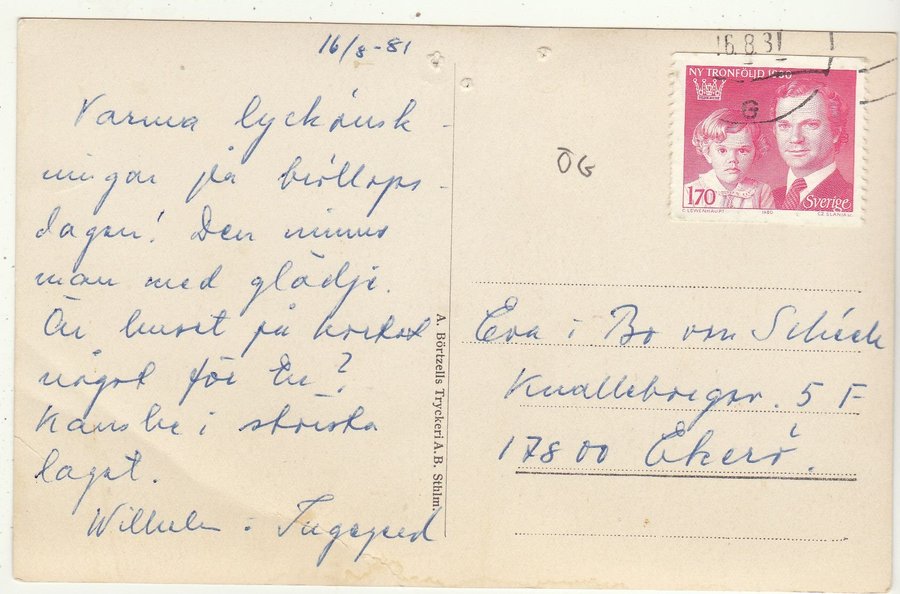 16/8-81
Varma lyckönsk-
ningar på bröllops-
dagen! Den minns
man med glädje.
Är huset på kortet
något för Er?
Kanske i största
laget.
Wilhelm : Ingegerd
A. Börtzells Tryckeri A.B. Sthlm.
16.8.81
G
NY TRONFÖLJD 1980
170 Sverige
C. LEWENHAUPT 1980 CZ. SLANIA SC.
ÖG
Eva i Bo von Scheele
5 F
17800 Ekerö.